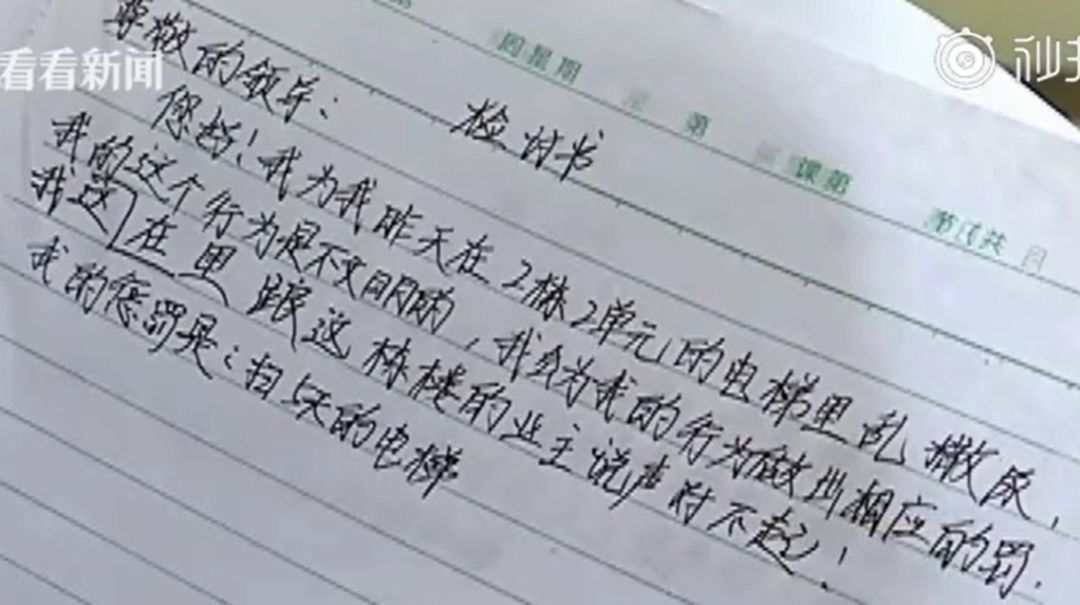 看看新闻
秒拍
周星期
第
课第
第 页共 日
检讨书
尊敬的领导：
您好！我为我昨天在2栋2单元的电梯里乱撒尿，
我的这个行为是不文明的，我会为我的行为做出相应的罚.
我在这里跟这栋楼的业主说声对不起！
我的惩罚是：扫5天的电梯